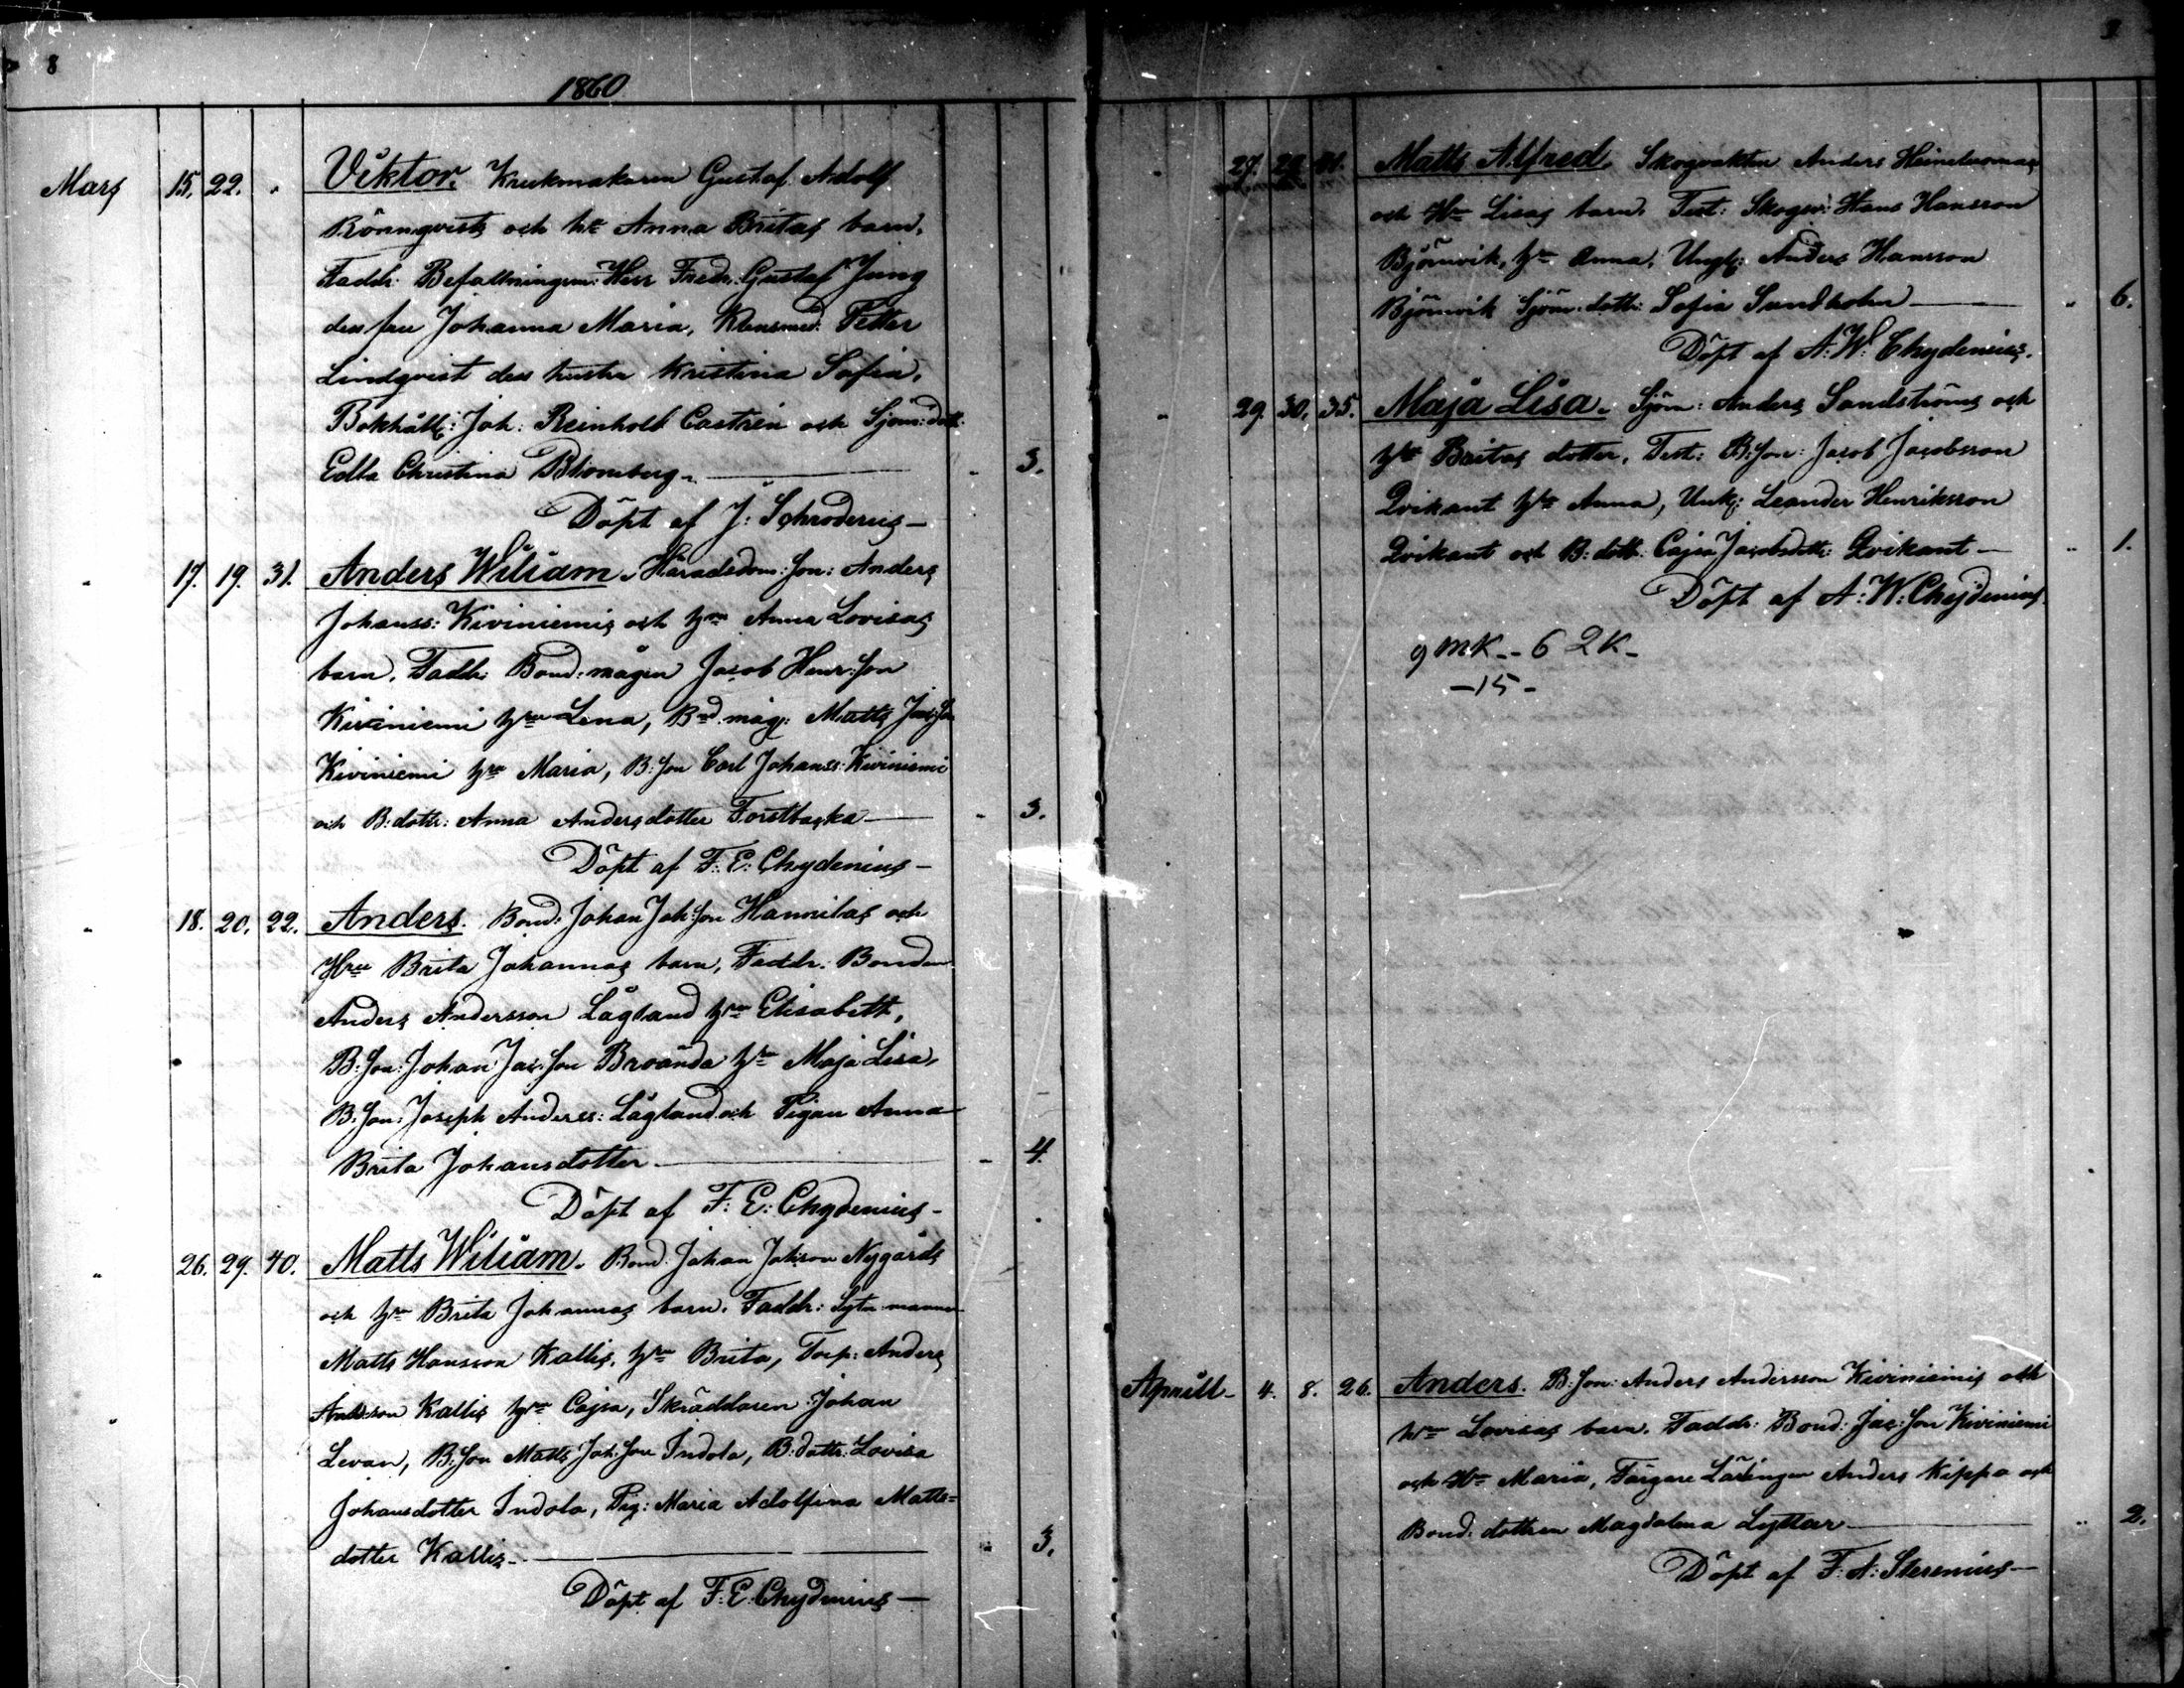 8
1860
Mars 15. 22. Viktor. Krukmakaren Gustaf Adolf
Rönnqvists och h: Anna Britas barn.
Faddr. Befallningsm: Herr Fredr: Gustaf Jung
dess fru Johanna Maria, Petter
Lindqvist dess hustru Kristina Sofia,
Bokhåll: Joh: Reinhold Castrén och Sjöm: dott:
Edla Christina Blomberg - 3.
Döpt af J: Schroderus -
" 17. 19. 31. Anders Wiliam. Häradsdom: son: Anders
Johanss: Kiviniemis och hru Anna Lovisas
barn. Faddr: Bond: mågen Jacob Henr: son
Kiviniemi hru Lena, Bnd. måg: Matts
Kiviniemi hru Maria, B: son Carl Johanss: Kiviniemi
och B: dottr: Anna Andersdotter Forstbacka - " 3.
Döpt af F: E: Chydenius -
" 18. 20. 22. Anders. Bond: Johan Joh: son Hannilas och
Hru Brita Johannas barn, Faddr: Bonden
Anders Andersson Lågland hru Elisabeth,
B: son: Johan Jac: son Broända hru Maja Lisa,
B: son: Joseph Anderss: Lågland och Pigan Anna
Brita Johansdotter - 4.
Döpt af F: E: Chydenius -
" 26. 29. 40. Matts Wiliam. Bond. Johan Johsson Nygårds
och hru Brita Johannas barn. Faddr:
Matts Hansson Kallis, hru Brita, Torp: Anders
Andersson Kallis hru Cajsa, Skräddaren Johan
Levan, B: son Matts Joh: son Indola, B: dottr: Lovisa
Johansdotter Indola, Pig: Maria Adolfina Matts=
dotter Kallis - " 3.
Döpt af F: E: Chydenius -
27. 29. 31. Matts Alfred. Skogvakten Anders
och Hru Lisas barn. Test: Skogsv: Hans Hansson
Björnvik, hru Anna, Ungk: Anders Hansson
Björnvik Sjöm: dottr: Sofia Sundholm - " 6.
Döpt af A: W: Chydenius.
" 29. 30. 35. Maja Lisa. Sjöm: Anders Sandströms och
hru Britas dotter, Test: B: son: Jacob Jacobsson
Qvikant hru Anna, Unk: Leander Henriksson
Qvikant och B: dott: Cajsa Jacobsdott: Qvikant - " 1.
Döpt af A: W: Chydenius
9 mk - - 6 2 K -
- 15 -
Aprill - 4. 8. 26. Anders. B: son: Anders Andersson Kiviniemis och
Hru Lovisas barn. Faddr: Bond: Jac: son Kiviniemi
och Hru Maria, Färgare Lärlingen Anders Kippo och
Bond: dottren Magdalena Lyttar - " 2.
Döpt af F: A: Sterenius -